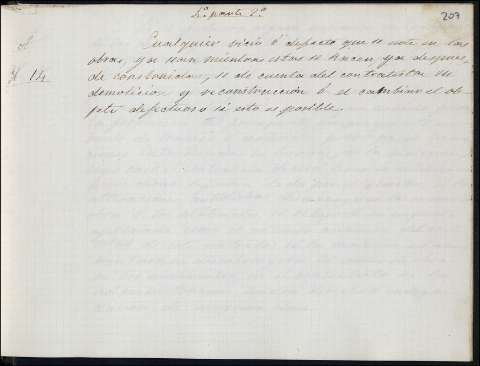 parte 2ª
207
Cualquier vicio ó defecto que se note en las
obras, ya sean mientras estas se hacen, ya despues
de construidas, es de cuenta del contratista su
demolicion y reconstrucción ó el cambiar el ob-
jeto defectuoso si esto es posible.
14